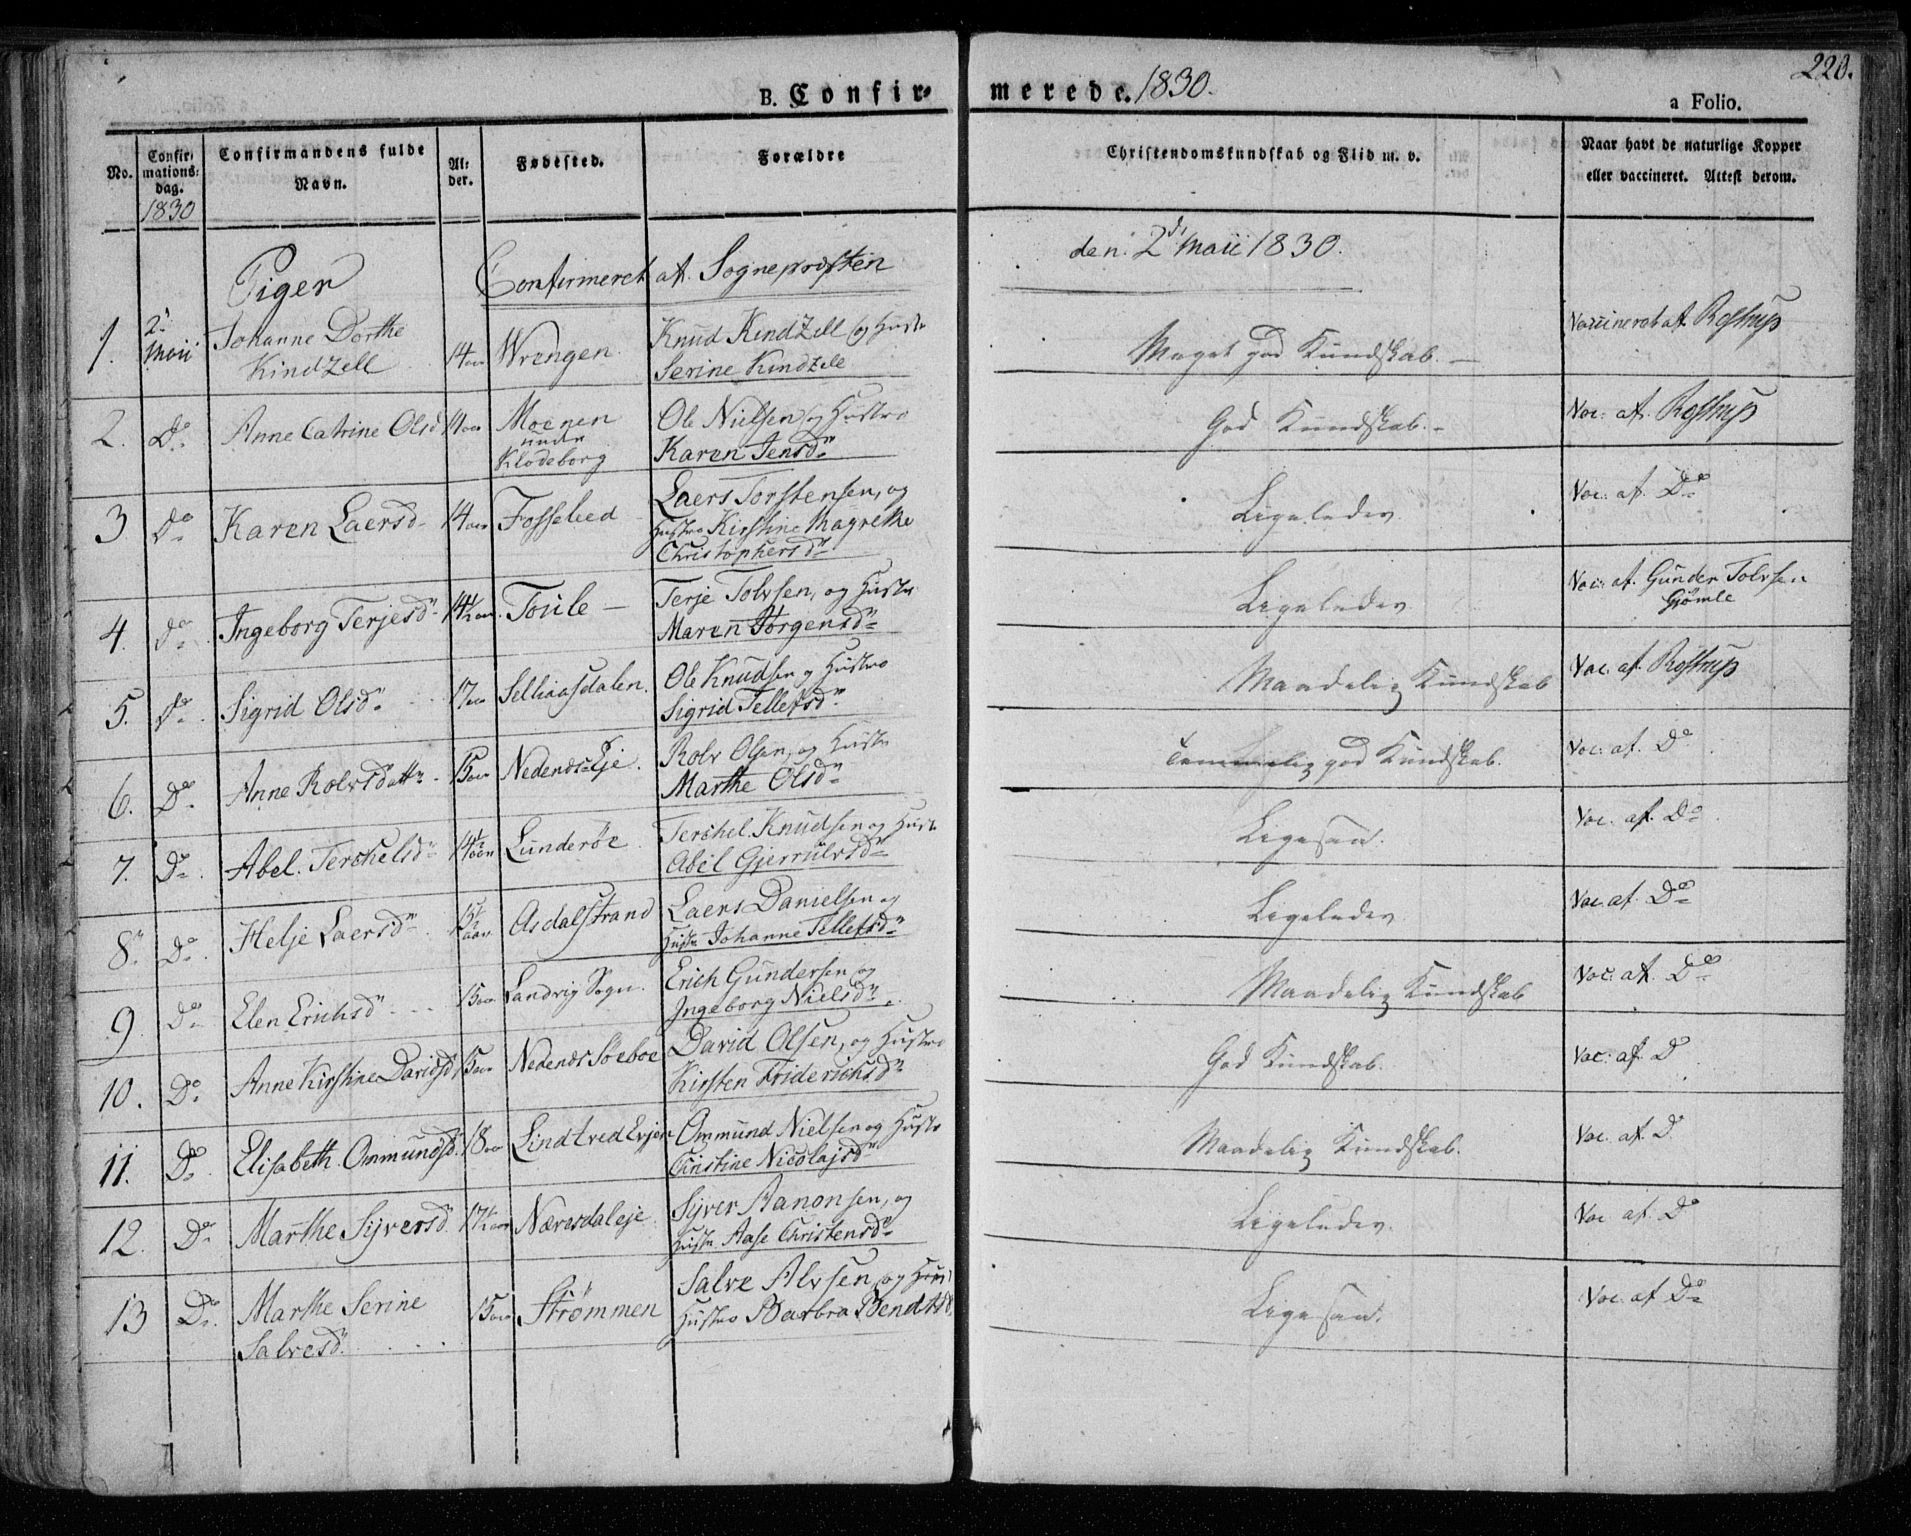 220.
B. Confirmerede. 1830.
a Folio.
No.
Confirmations-dag. 1830
Confirmandens fulde Navn.
Alder.
Fødested.
Forældre
Christendomskundskab og Flid m. v.
Naar havt de naturlige Kopper eller vaccineret. Attest derom.
Piger Confirmeret af Sognepresten den 2d Maii 1830.
1. 2 Maii Johanne Dorthe Kindzell 14 aar Wrengen Knud Kindzell og Hustr Serine Kindzell Meget god Kundskab. Vaccineret af Rostrup
2. Do Anne Catrine Olsd 14 aar Moenen under Klodeborg Ole Nielsen og Hustro Karen Jensd God Kundskab. Vac: af. Rostrup
3 Do Karen Laersd 14 aar Laers Torstensen, og Hustro Kirstine Magrethe Christophersd Ligeledes Vac: af. Do
4. Do Ingeborg Terjesd 14 1/2 aar Toule Terje Tolvsen, og Hustr Maren Jørgensd Ligeledes Vac: af. Gunder Tolvsen Gjömle
5. Do Sigrid Olsd 17 aar Selliaasdalen Ole Knudsen og Hustro Sigrid Tellefsd Maadelig Kundskab Vac. af. Rostrup
6. Do Anne Rolvsdattr 15 aar Nedenes Eje. Rolv Olsen, og Hustr Marthe Olsd Temmelig god Kundskab. Vac: af. Do
7. Do Abel Terchelsd 14 1/2 aar Lunderöe Terchel Knudsen og Hustr Abel Gjerrulvsd Ligesaa. Vac. af. Do
8. Do Helje Laersd 15 1/2 aar Asdalstrand Laers Danielsen og Hustr Johanne Tellefsd Ligeledes Vac. af. Do
9. Do Elen Erichsd 15 aar Landvig Sogn. Erich Gundersen og Ingeborg Nielsd Maadelig Kundskab Vac: af. Do
10. Do Anne Kirstine Davidsd 15 aar Nedenes Söeboe David Olsen, og Hustro Kirsten Friderichsd God Kundskab. Vac: af. D
11. Do Elisabeth Ommundsd 18 aar Ommund Nielsen og Hustr Christine Nicolajsd Maadelig Kundskab. Vac. af. D
12. Do Marthe Sijversd 17 1/2 aar Næresdaleje Sijver Aanonsen, og Hustr Aase Christensd Ligeledes. Vac. af. Do
13 Do Marthe Serine Salvesd 15 aar Strømmen Salve Alvsen, og Hustro Barbra Bendtsd Ligesaa. Vac. af Do